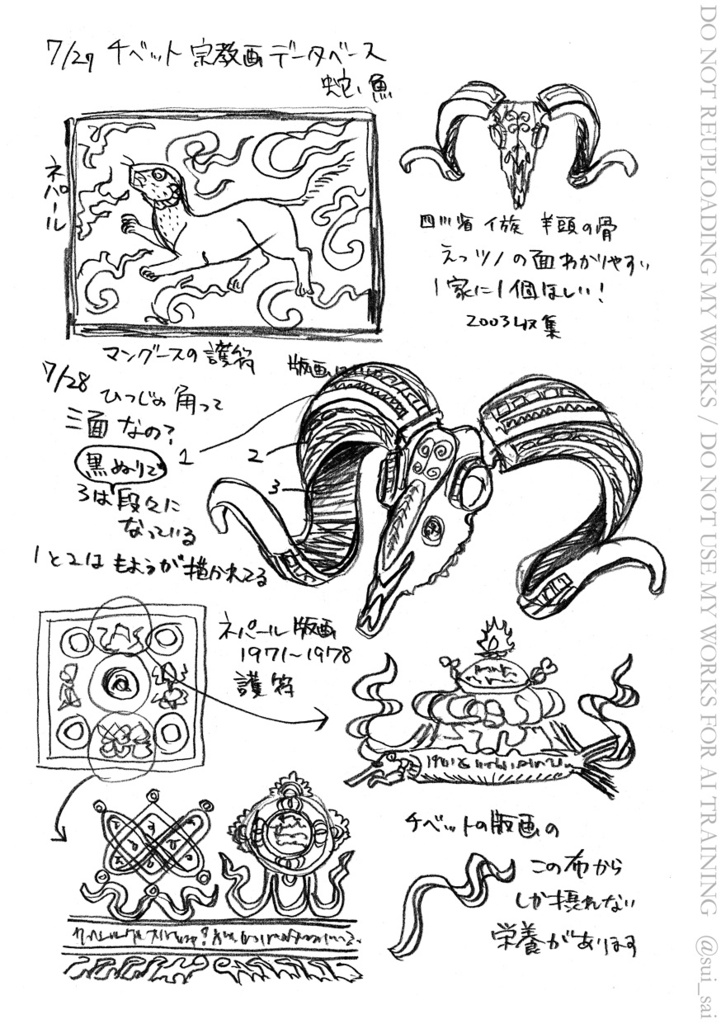 7/27 チベット 宗教画データベース
蛇、魚
ネパール
マングースの護符 版画
四川省 イ族 羊頭の骨
えっツノの面わかりやすい
1家に1個ほしい!
2003収集
7/28 ひつじの角って
三面なの?
1
2
3
黒ぬりで
3は段々に
なっている
1と2はもようが描かれてる
ネパール版画
1971~1978
護符
チベットの版画の
この布から
しか摂れない
栄養があります
DO NOT REUPLOADING MY WORKS / DO NOT USE MY WORKS FOR AI TRAINING @sui_sai